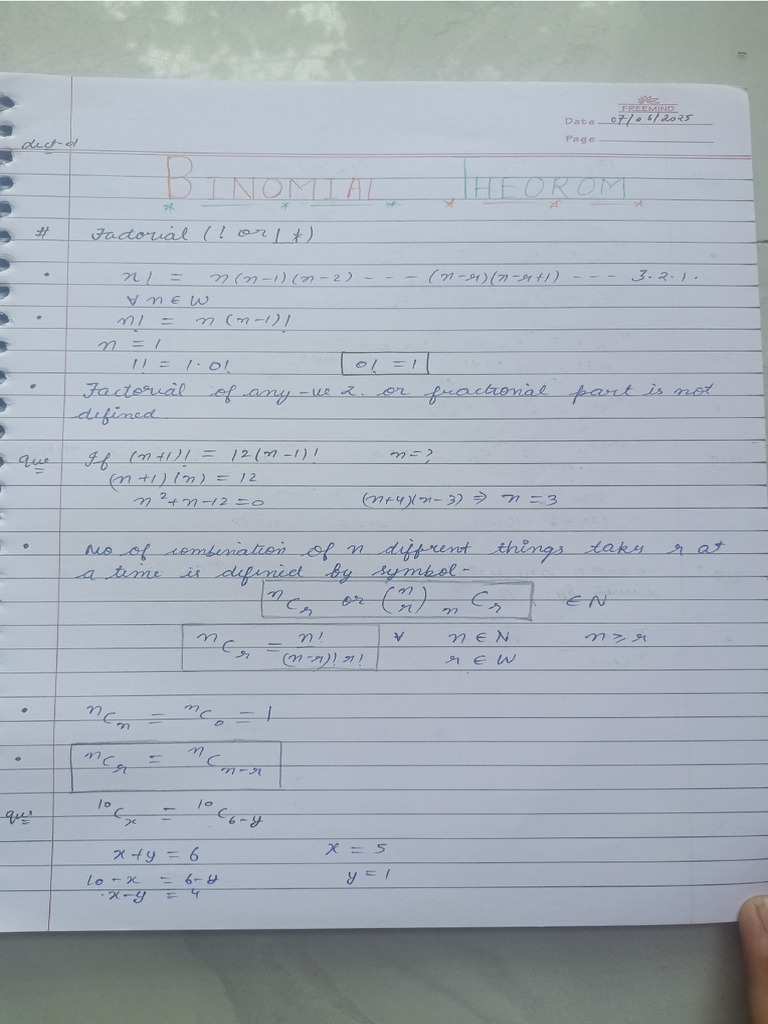 FREEMIND
Date 07/06/2025
Page
Lect-01
BINOMIAL THEOROM
# Factorial (! or | *)
• n! = n(n-1)(n-2) --- (n-r)(n-r+1) --- 3.2.1.
∀ n ∈ W
• n! = n (n-1)!
n = 1
1! = 1·0! 0! = 1
• Factorial of any -ve I. or fractional part is not
defined.
que If (n+1)! = 12(n-1)! n=?
(n+1)(n) = 12
n²+n-12=0 (n+4)(n-3) ⇒ n=3
• No of combination of n diffrent things takes r at
a time is defined by symbol-
ⁿCᵣ or (n r) ₙCᵣ ∈ N
ⁿCᵣ = n!/(n-r)! r! ∀ n ∈ N n ≥ r
r ∈ W
• ⁿCₙ = ⁿC₀ = 1
• ⁿCᵣ = ⁿCₙ₋ᵣ
que ¹⁰Cₓ = ¹⁰C₆₋y
x+y = 6 x = 5
10-x = 6-y y = 1
x-y = 4